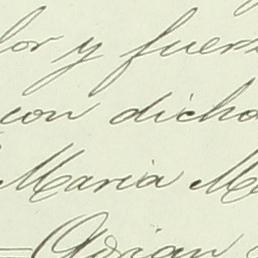 lor y fuerz
con dicho
Maria M
Adrian